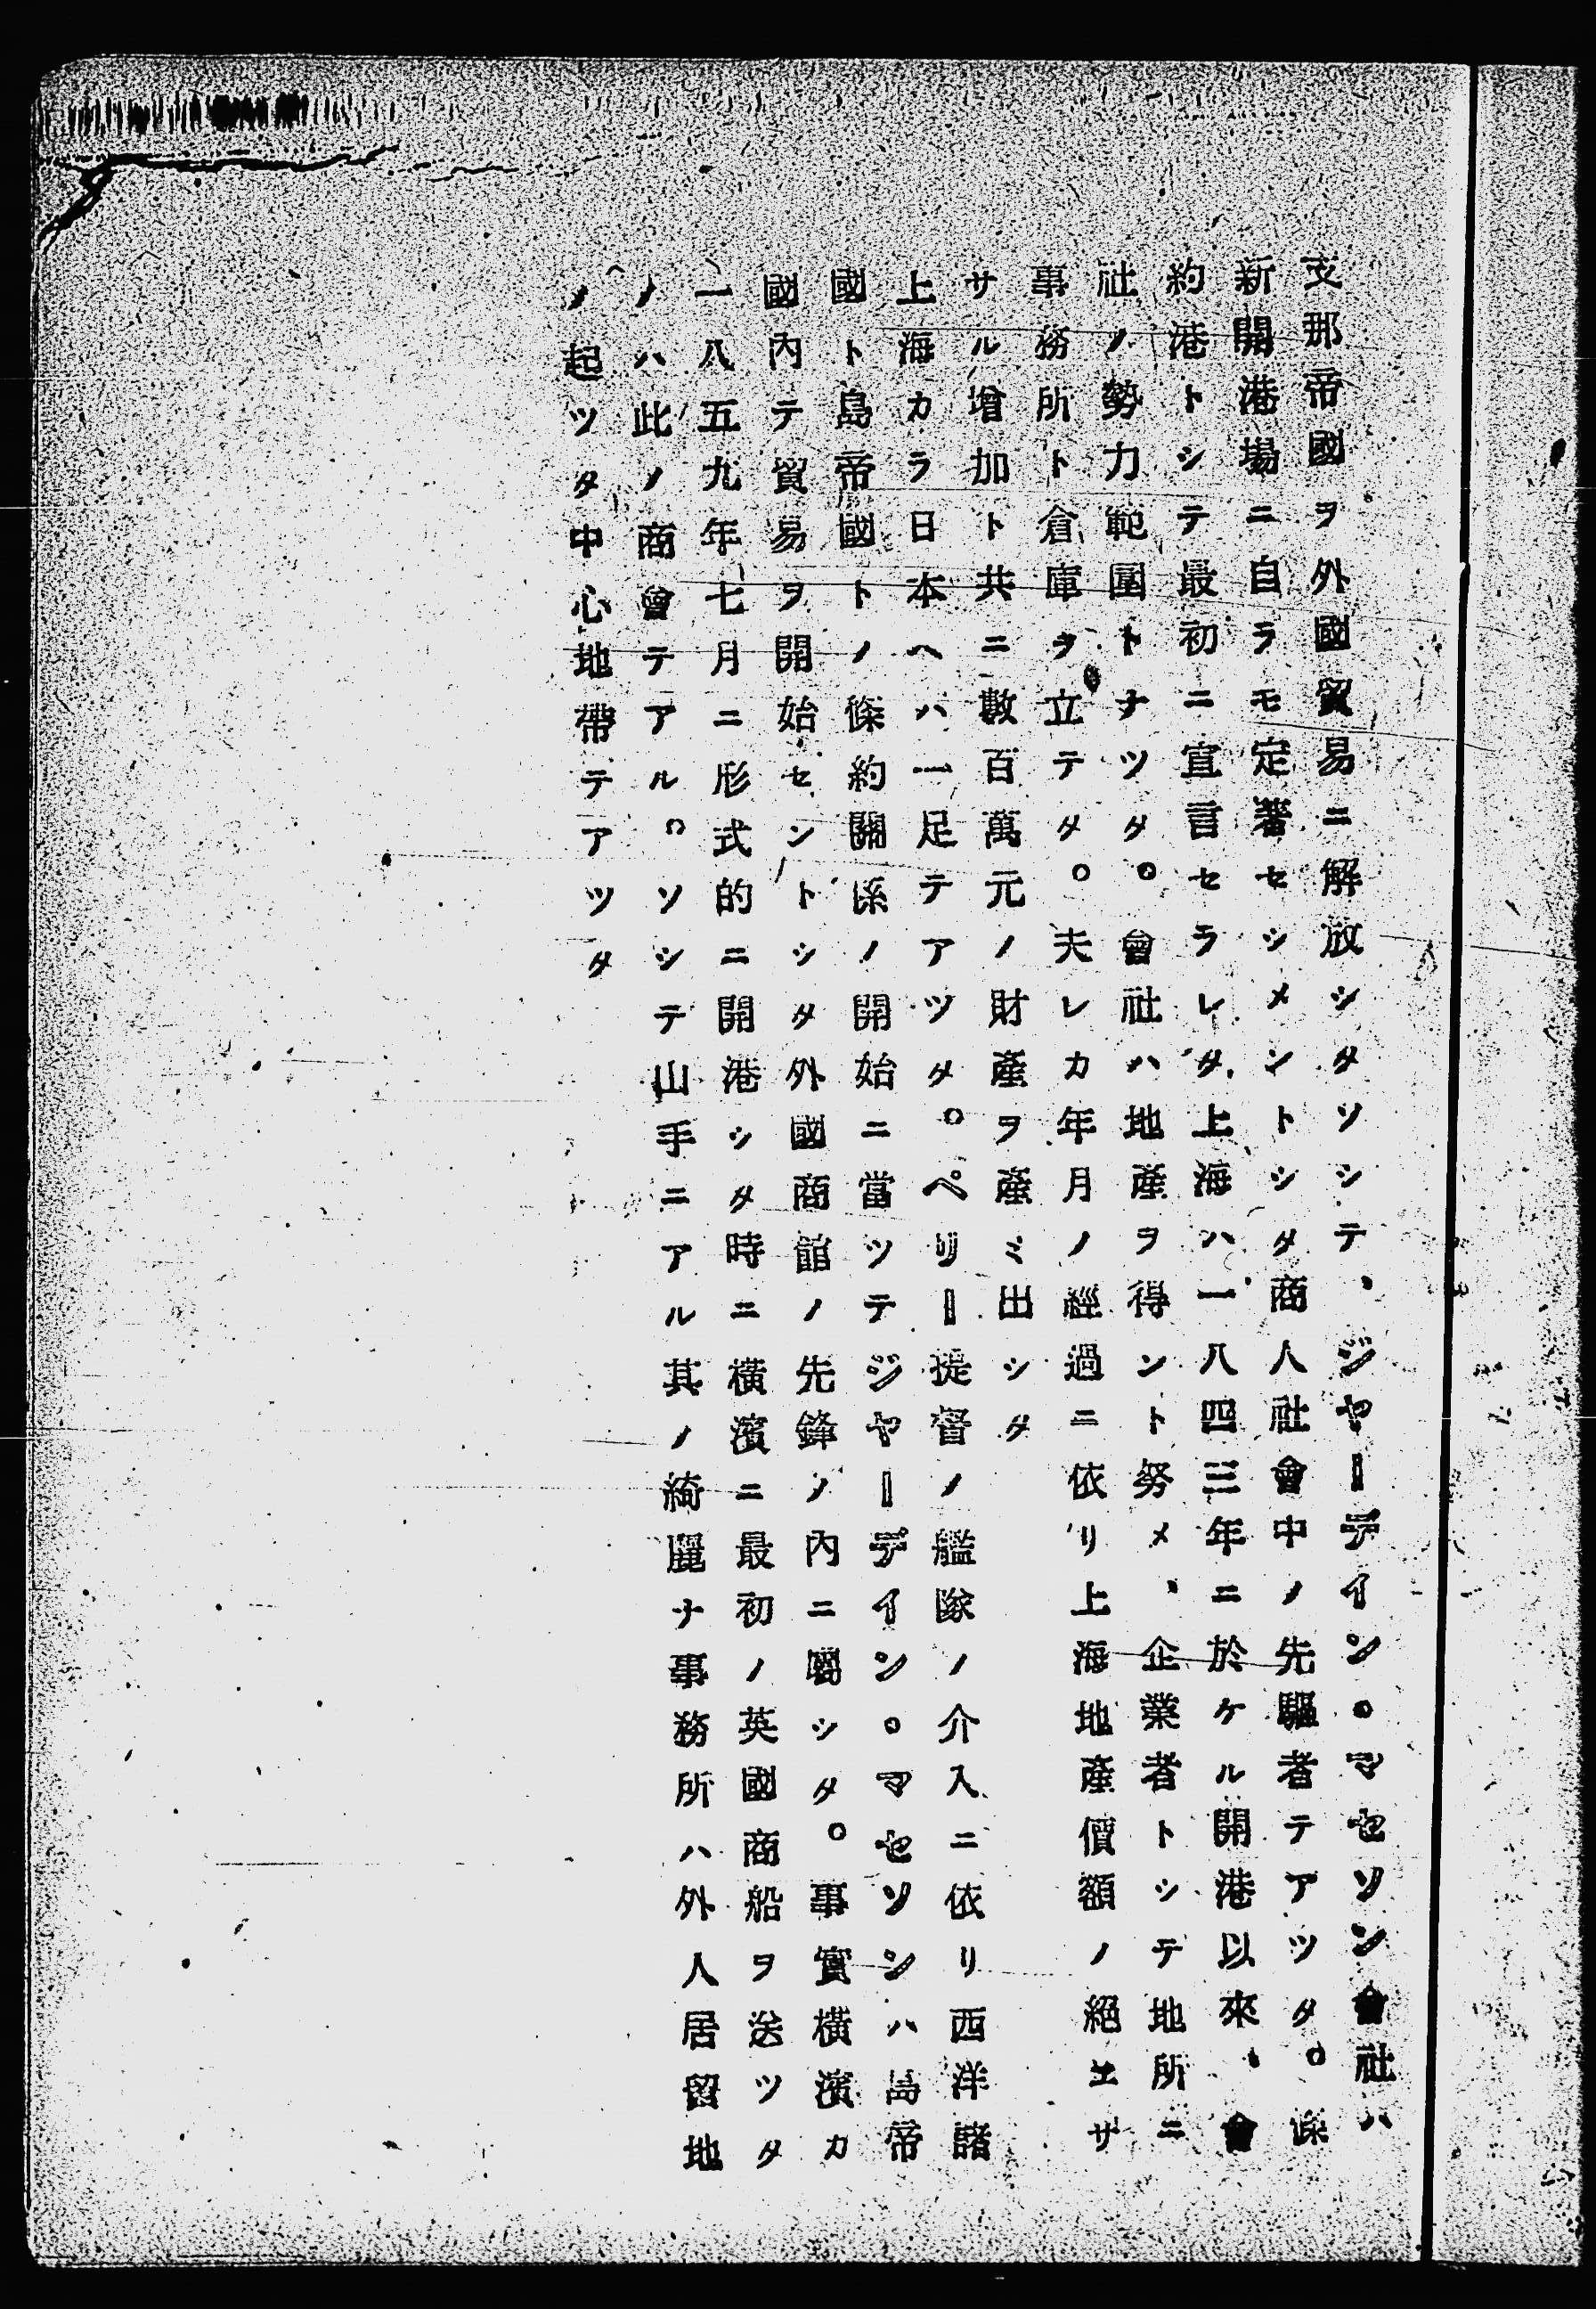 支那帝國ヲ外國貿易ニ解放シタソシテ、ジヤーデイン。マセソン會社ハ
新開港場ニ自ラモ定著セシメントシタ商人社會中ノ先驅者テアツタ。條
約港トシテ最初ニ宣言セラレタ上海ハ一八四三年ニ於ケル開港以來、會
社ノ勢力範圍トナツタ。會社ハ地産ヲ得ント努メ、企業者トシテ地所ニ
事務所ト倉庫ヲ立テタ。夫レカ年月ノ經過ニ依リ上海地産價額ノ絕エサ
サル增加ト共ニ數百萬元ノ財產ヲ產ミ出シタ
上海カラ日本ヘハ一足テアツタ。ペリー提督ノ艦隊ノ介入ニ依リ西洋諸
國ト島帝國トノ條約關係ノ開始ニ當ツテジヤーデイン。マセソンハ島帝
國內テ貿易ヲ開始セントシタ外國商館ノ先鋒ノ內ニ屬シタ。事實橫濱カ
一八五九年七月ニ形式的ニ開港シタ時ニ橫濱ニ最初ノ英國商船ヲ送ツタ
ノハ此ノ商會テアル。ソシテ山手ニアル其ノ綺麗ナ事務所ハ外人居留地
ノ起ツタ中心地帶テアツタ